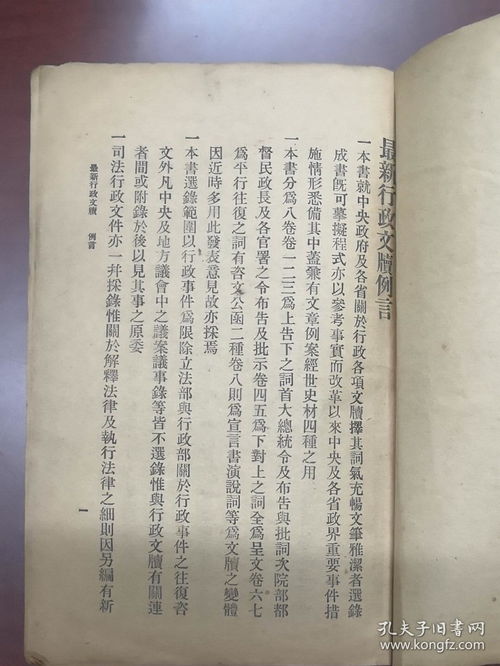 最新行政文牘例言
一本書就中央政府及各省關於行政各項文牘擇其詞氣充暢文筆雅潔者選錄
成書旣可摹擬程式亦以參考事實而改革以來中央及各省政界重要事件措
施情形悉備其中蓋兼有文章例案經世史材四種之用
一本書分爲八卷卷一二三爲上告下之詞首大總統令及布告與批詞次院部都
督民政長及各官署之令布告及批示卷四五爲下對上之詞全爲呈文卷六七
爲平行往復之詞有咨文公函二種卷八則爲宣言書演說詞等爲文牘之變體
因近時多用此發表意見故亦採焉
一本書選錄範圍以行政事件爲限除立法部與行政部關於行政事件之往復咨
文外凡中央及地方議會中之議案議事錄等皆不選錄惟與行政文牘有關連
者間或附錄於後以見其事之原委
一司法行政文件亦一幷採錄惟關於解釋法律及執行法律之細則因另編有新
最新行政文牘 例言
一
孔夫子旧书网
www.kongfz.com